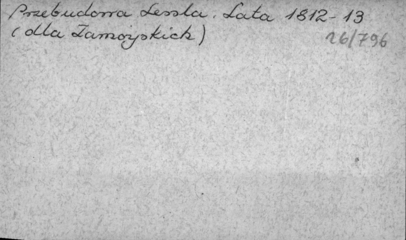 Przebudowa Lessla. Lata 1812-13
(dla Zamoyskich)
26/796